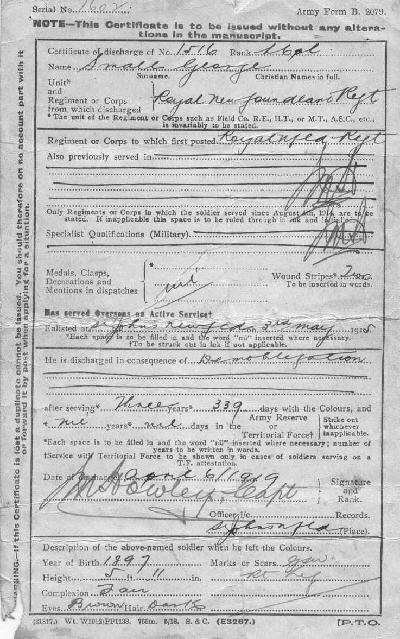 Serial No.
Army Form B. 2079.
NOTE—This Certificate is to be issued without any altera-
tions in the manuscript.
Certificate of discharge of No. 1516 Rank L Cpl
Name Small George
Surname. Christian Names in full.
Unit*
and
Regiment or Corps
from which discharged
Royal Newfoundland Regt
* The unit of the Regiment or Corps such as Field Co. R.E., H.T., or M.T., A.S.C., etc.,
is invariably to be stated.
Regiment or Corps to which first posted Royal Nfld Regt
Also previously served in
Only Regiments or Corps in which the soldier served since August 4th, 1914, are to be
stated. If inapplicable this space is to be ruled through in ink and initialled.
Specialist Qualifications (Military)
Medals, Clasps,
Decorations and
Mentions in dispatches
nil
Wound Stripes*
To be inserted in words.
Has served Overseas on Active Service†
Enlisted at St Johns Newfld on 3rd May 1915
*Each space is to be filled in and the word "nil" inserted where necessary.
†To be struck out in ink if not applicable.
He is discharged in consequence of Demobilization
after serving* Three years* 339 days with the Colours, and
* nil years* nil days in the
Army Reserve
or
Territorial Force†
Strike out
whichever
inapplicable.
*Each space is to be filled in and the word "nil" inserted where necessary; number of
years to be written in words.
†Service with Territorial Force to be shown only in cases of soldiers serving on a
T.F. attestation.
Date of discharge April 6/1919
Capt
Signature
and
Rank.
Officer i/c Records.
St Johns Nfld (Place).
Description of the above-named soldier when he left the Colours.
Year of Birth 1897
Marks or Scars GSW
Height 5 ft. 11 in.
Rt
Complexion Fair
Eyes Brown Hair Dark
W1815/PP1138. 9/18. S. & C. (E3267.)
[P.T.O.
WARNING.—If this Certificate is lost a duplicate cannot be issued. You should therefore on no account part with it
or forward it by post when applying for a situation.